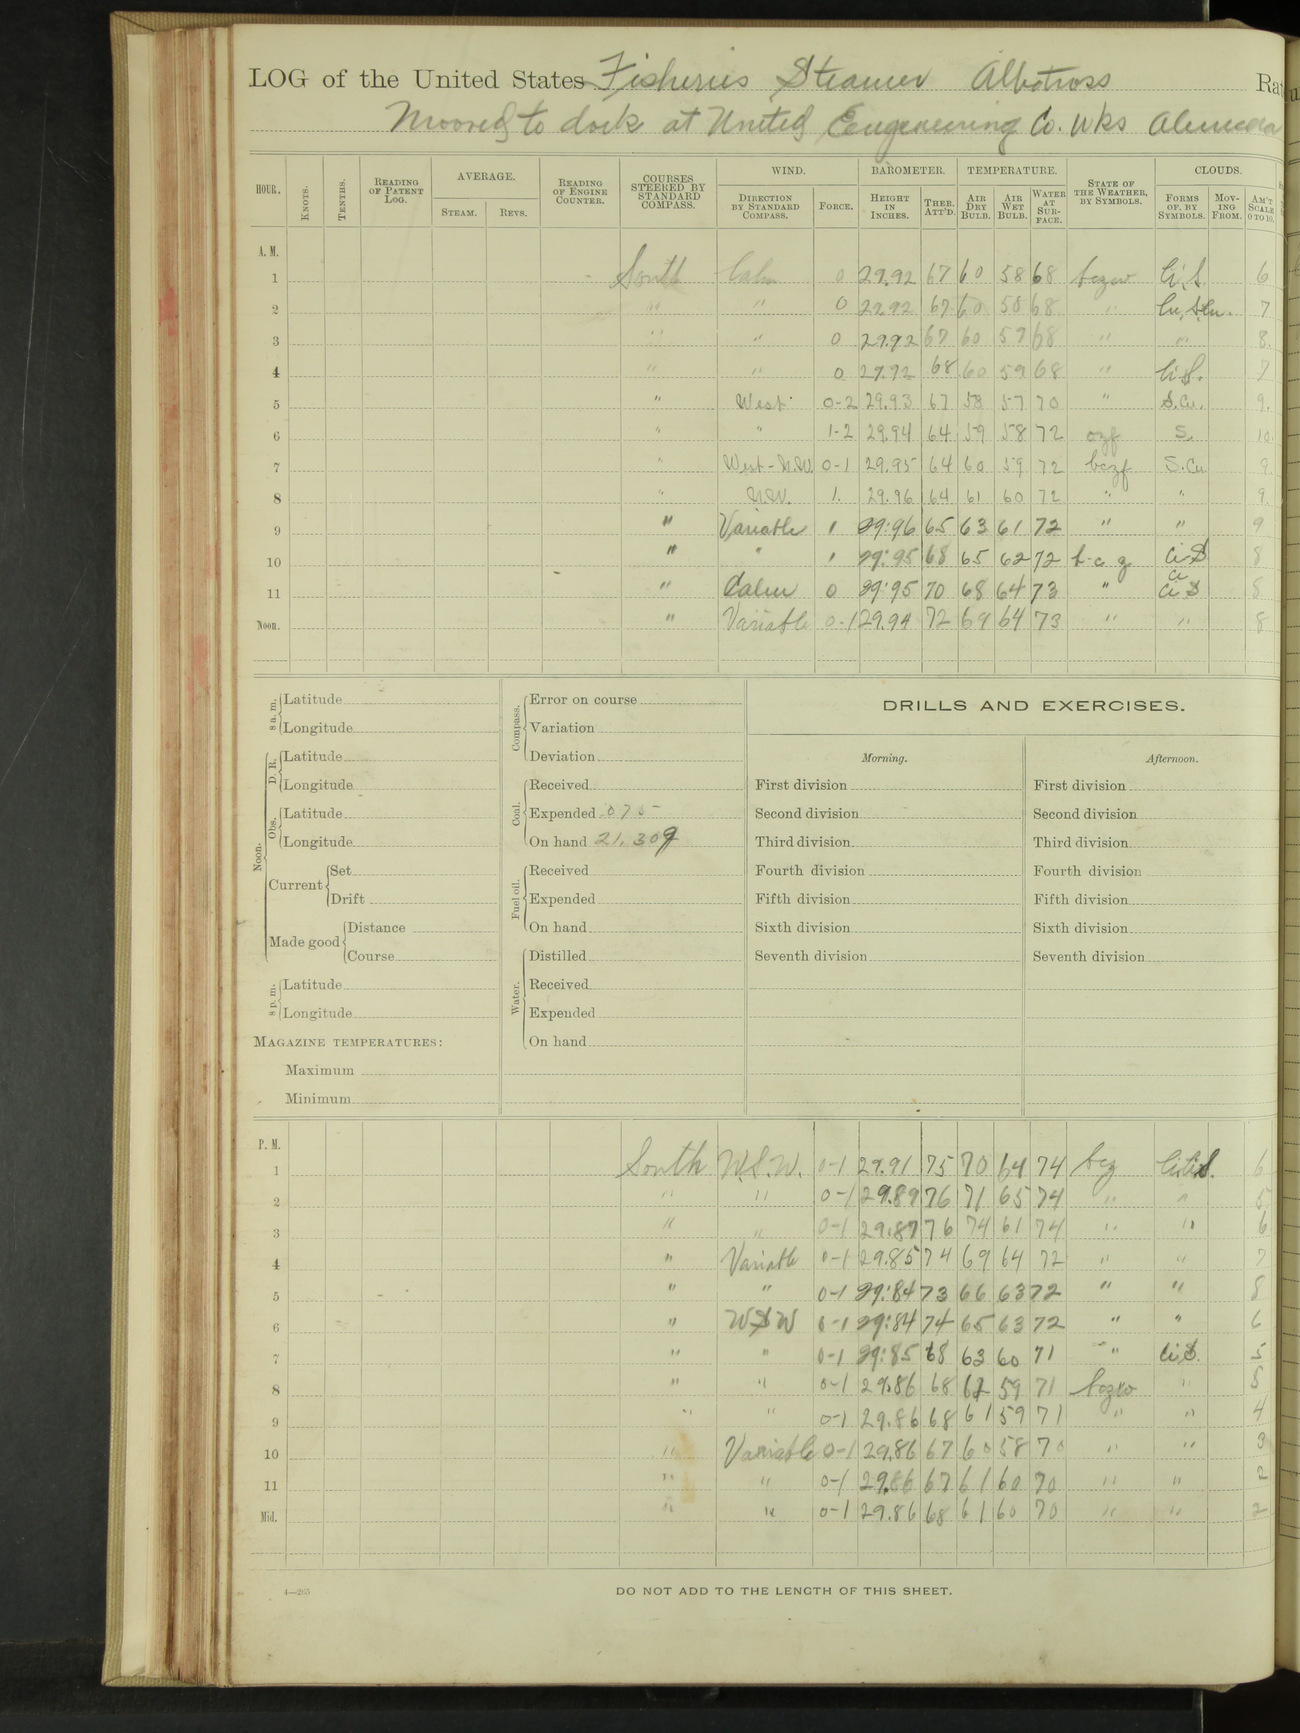 LOG of the United States Fisheries Steamer Albatross Rat
Moored to dock at United Engineering Co. Wks Alameda
HOUR. KNOTS. TENTHS. READING OF PATENT LOG. AVERAGE. STEAM. REVS. READING OF ENGINE COUNTER. COURSES STEERED BY STANDARD COMPASS. WIND. DIRECTION BY STANDARD COMPASS. FORCE. BAROMETER. HEIGHT IN INCHES. THER. ATT'D. TEMPERATURE. AIR DRY BULB. AIR WET BULB. WATER AT SURFACE. STATE OF THE WEATHER, BY SYMBOLS. CLOUDS. FORMS OF, BY SYMBOLS. MOVING FROM. AM'T SCALE 0 TO 10.
A. M.
1 South Calm 0 29.92 67 60 58 68 bczw Ci.S 6
2 " " 0 29.92 67 60 58 68 " Cu, SCu. 7
3 " " 0 29.92 67 60 59 68 " " 8.
4 " " 0 29.92 68 60 59 68 " Ci.S. 7
5 " West 0-2 29.93 67 58 57 70 " S.Cu. 9.
6 " " 1-2 29.94 64 59 58 72 ozf S. 10.
7 " West-N.W. 0-1 29.95 64 60 59 72 bczf S.Cu 9
8 " N.W. 1. 29.96 64 61 60 72 " " 9.
9 " Variable 1 29:96 65 63 61 72 " " 9
10 " " 1 29:95 68 65 62 72 b-c z Ci-S 8
11 " Calm 0 29:95 70 68 64 73 " Ci Ci S 8
Noon. " Variable 0-1 29.94 72 69 64 73 " " 8
8 a. m. Latitude
Longitude
Noon. D. R. Latitude
Longitude
Obs. Latitude
Longitude
Current Set
Drift
Made good Distance
Course
8 p. m. Latitude
Longitude
MAGAZINE TEMPERATURES:
Maximum
Minimum
Compass. Error on course
Variation
Deviation
Coal. Received
Expended 075
On hand 21.309
Fuel oil. Received
Expended
On hand
Water. Distilled
Received
Expended
On hand
DRILLS AND EXERCISES.
Morning. Afternoon.
First division First division
Second division Second division
Third division Third division
Fourth division Fourth division
Fifth division Fifth division
Sixth division Sixth division
Seventh division Seventh division
P. M.
1 South W.S.W. 0-1 29.91 75 70 64 74 bcz Ci.Ci.S. 6
2 " " 0-1 29.89 76 71 65 74 " " 5
3 " " 0-1 29.87 76 74 61 74 " " 6
4 " Variable 0-1 29.85 74 69 64 72 " " 7
5 " " 0-1 29:84 73 66 63 72 " " 8
6 " WSW 0-1 29:84 74 65 63 72 " " 6
7 " " 0-1 29:85 68 63 60 71 " Ci.S. 5
8 " " 0-1 29.86 68 62 59 71 bczw " 5
9 " " 0-1 29.86 68 61 59 71 " " 4
10 " Variable 0-1 29.86 67 60 58 70 " " 3
11 " " 0-1 29.86 67 61 60 70 " " 2
Mid. " " 0-1 29.86 68 61 60 70 " " 2
4—265
DO NOT ADD TO THE LENGTH OF THIS SHEET.